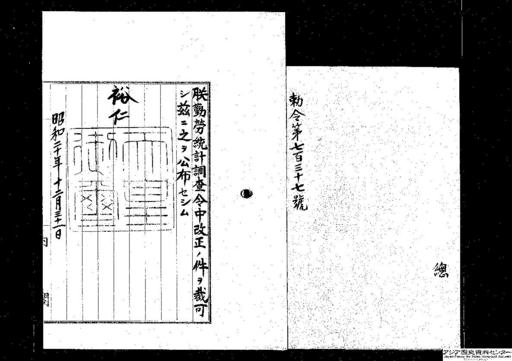 勅令第七百三十七號
總
朕勤勞統計調査令中改正ノ件ヲ裁可
シ茲ニ之ヲ公布セシム
裕仁
昭和二十年十二月三十一日
内閣
アジア歴史資料センター